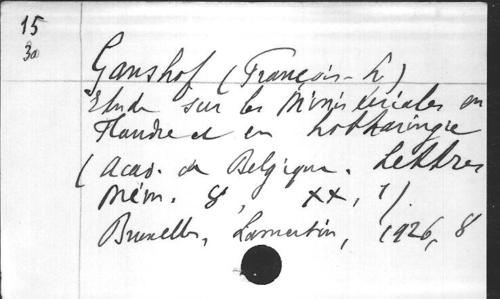 15
3a
Ganshof (François-L)
Etude sur les Ministeriales en
Flandre et en Lotharingie
(Acad. de Belgique. Lettres
Mém. 8, XX, 1).
Bruxelles, Lamertin, 1926, 8